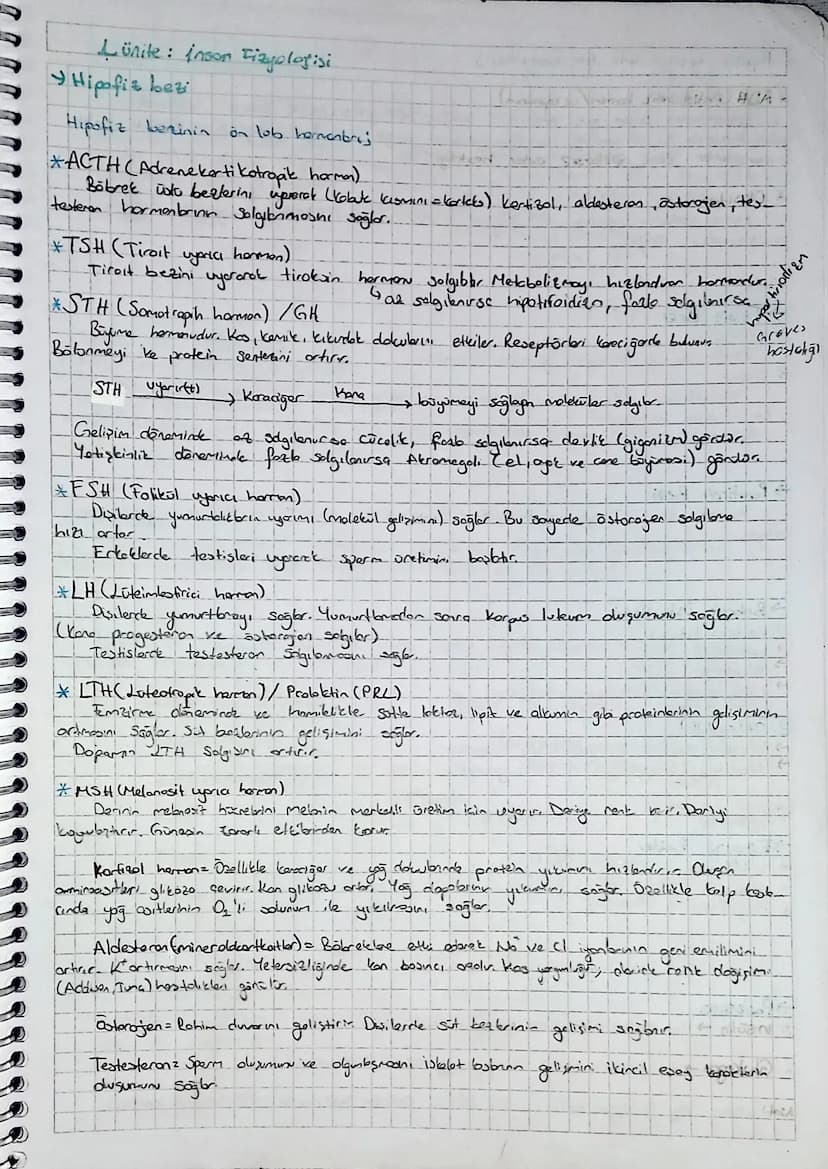 1.ünite: İnsan Fizyolojisi
→ Hipofiz bezi
Hipofiz bezinin ön lob hormonları
*ACTH (Adrenekortikotropik hormon)
Böbrek üstü bezlerini uyararak (kabuk kısmını = korteks) kortizol, aldesteron, östorojen, tes-
testeron hormonlarının salgılanmasını sağlar.
*TSH (Tiroit uyarıcı hormon)
Tiroit bezini uyararak tiroksin hormonu salgılatır Metabolizmayı hızlandıran hormondur.
↳ az salgılanırsa hipotiroidizm, fazla salgılanırsa hipertiroidizm
Graves hastalığı
*STH (Somotropik hormon) /GH
Büyüme hormonudur. Kas, kemik, kıkırdak dokularını etkiler. Reseptörleri karaciğerde bulunur.
Bölünmeyi ve protein sentezini artırır.
STH uyarır(+) → Karaciğer Kana → büyümeyi sağlayan moleküller salgılar
Gelişim döneminde az salgılanırsa cücelik, fazla salgılanırsa devlik (gigantizm) görülür.
Yetişkinlik döneminde fazla salgılanırsa Akromegali (el, ayak ve çene büyümesi) görülür.
*FSH (Folikül uyarıcı hormon)
Dişilerde yumurtalıkların uyarımı (molekül gelişimini) sağlar. Bu sayede östorojen salgılama
hızı artar.
Erkeklerde testisleri uyararak sperm üretimini başlatır.
*LH (Lüteinleştirici hormon)
Dişilerde yumurtlamayı sağlar. Yumurtlamadan sonra korpus luteum oluşumunu sağlar.
(Kana progesteron ve östorojen salgılar)
Testislerde testesteron salgılanmasını sağlar.
* LTH (Luteotropik hormon) / Prolaktin (PRL)
Emzirme döneminde ve hamilelikte sütte laktoz, lipit ve albumin gibi proteinlerinin gelişiminin
artmasını sağlar. Süt bezlerinin gelişimini sağlar.
Dopamin LTH salgısını artırır.
*MSH (Melanosit uyarıcı hormon)
Derinin melanosit hücrelerini melanin üretim için uyarır. Deriye renk verir. Deriyi
koyulaştırır. Güneşin zararlı etkilerinden korur.
Kortizol hormon = Özellikle karaciğer ve yağ dokularında protein yıkımını hızlandırır. Oluşan
aminoasitleri glikoza çevirir. Kan glikozu artar. Yağ depolarının yıkımını sağlar. Özellikle kalp kasl-
arında yağ asitlerinin O₂'li solunum ile yıkılmasını sağlar.
Aldesteron = Böbreklere etki ederek Na ve Cl iyonlarının geri emilimini
artırır. K⁺ artırmasını sağlar. Yetersizliğinde kan basıncı azalır. kas yorgunluğu, deride renk değişim
(Addison, Tunç) hastalıkları görülür.
Östorojen = Rahim duvarını geliştirir. Dişilerde süt bezlerinin gelişimi sağlanır.
Testesteron = Sperm oluşumunu ve olgunlaşmasını iskelet kaslarının gelişimini ikincil eşey karakterlerin
oluşumunu sağlar